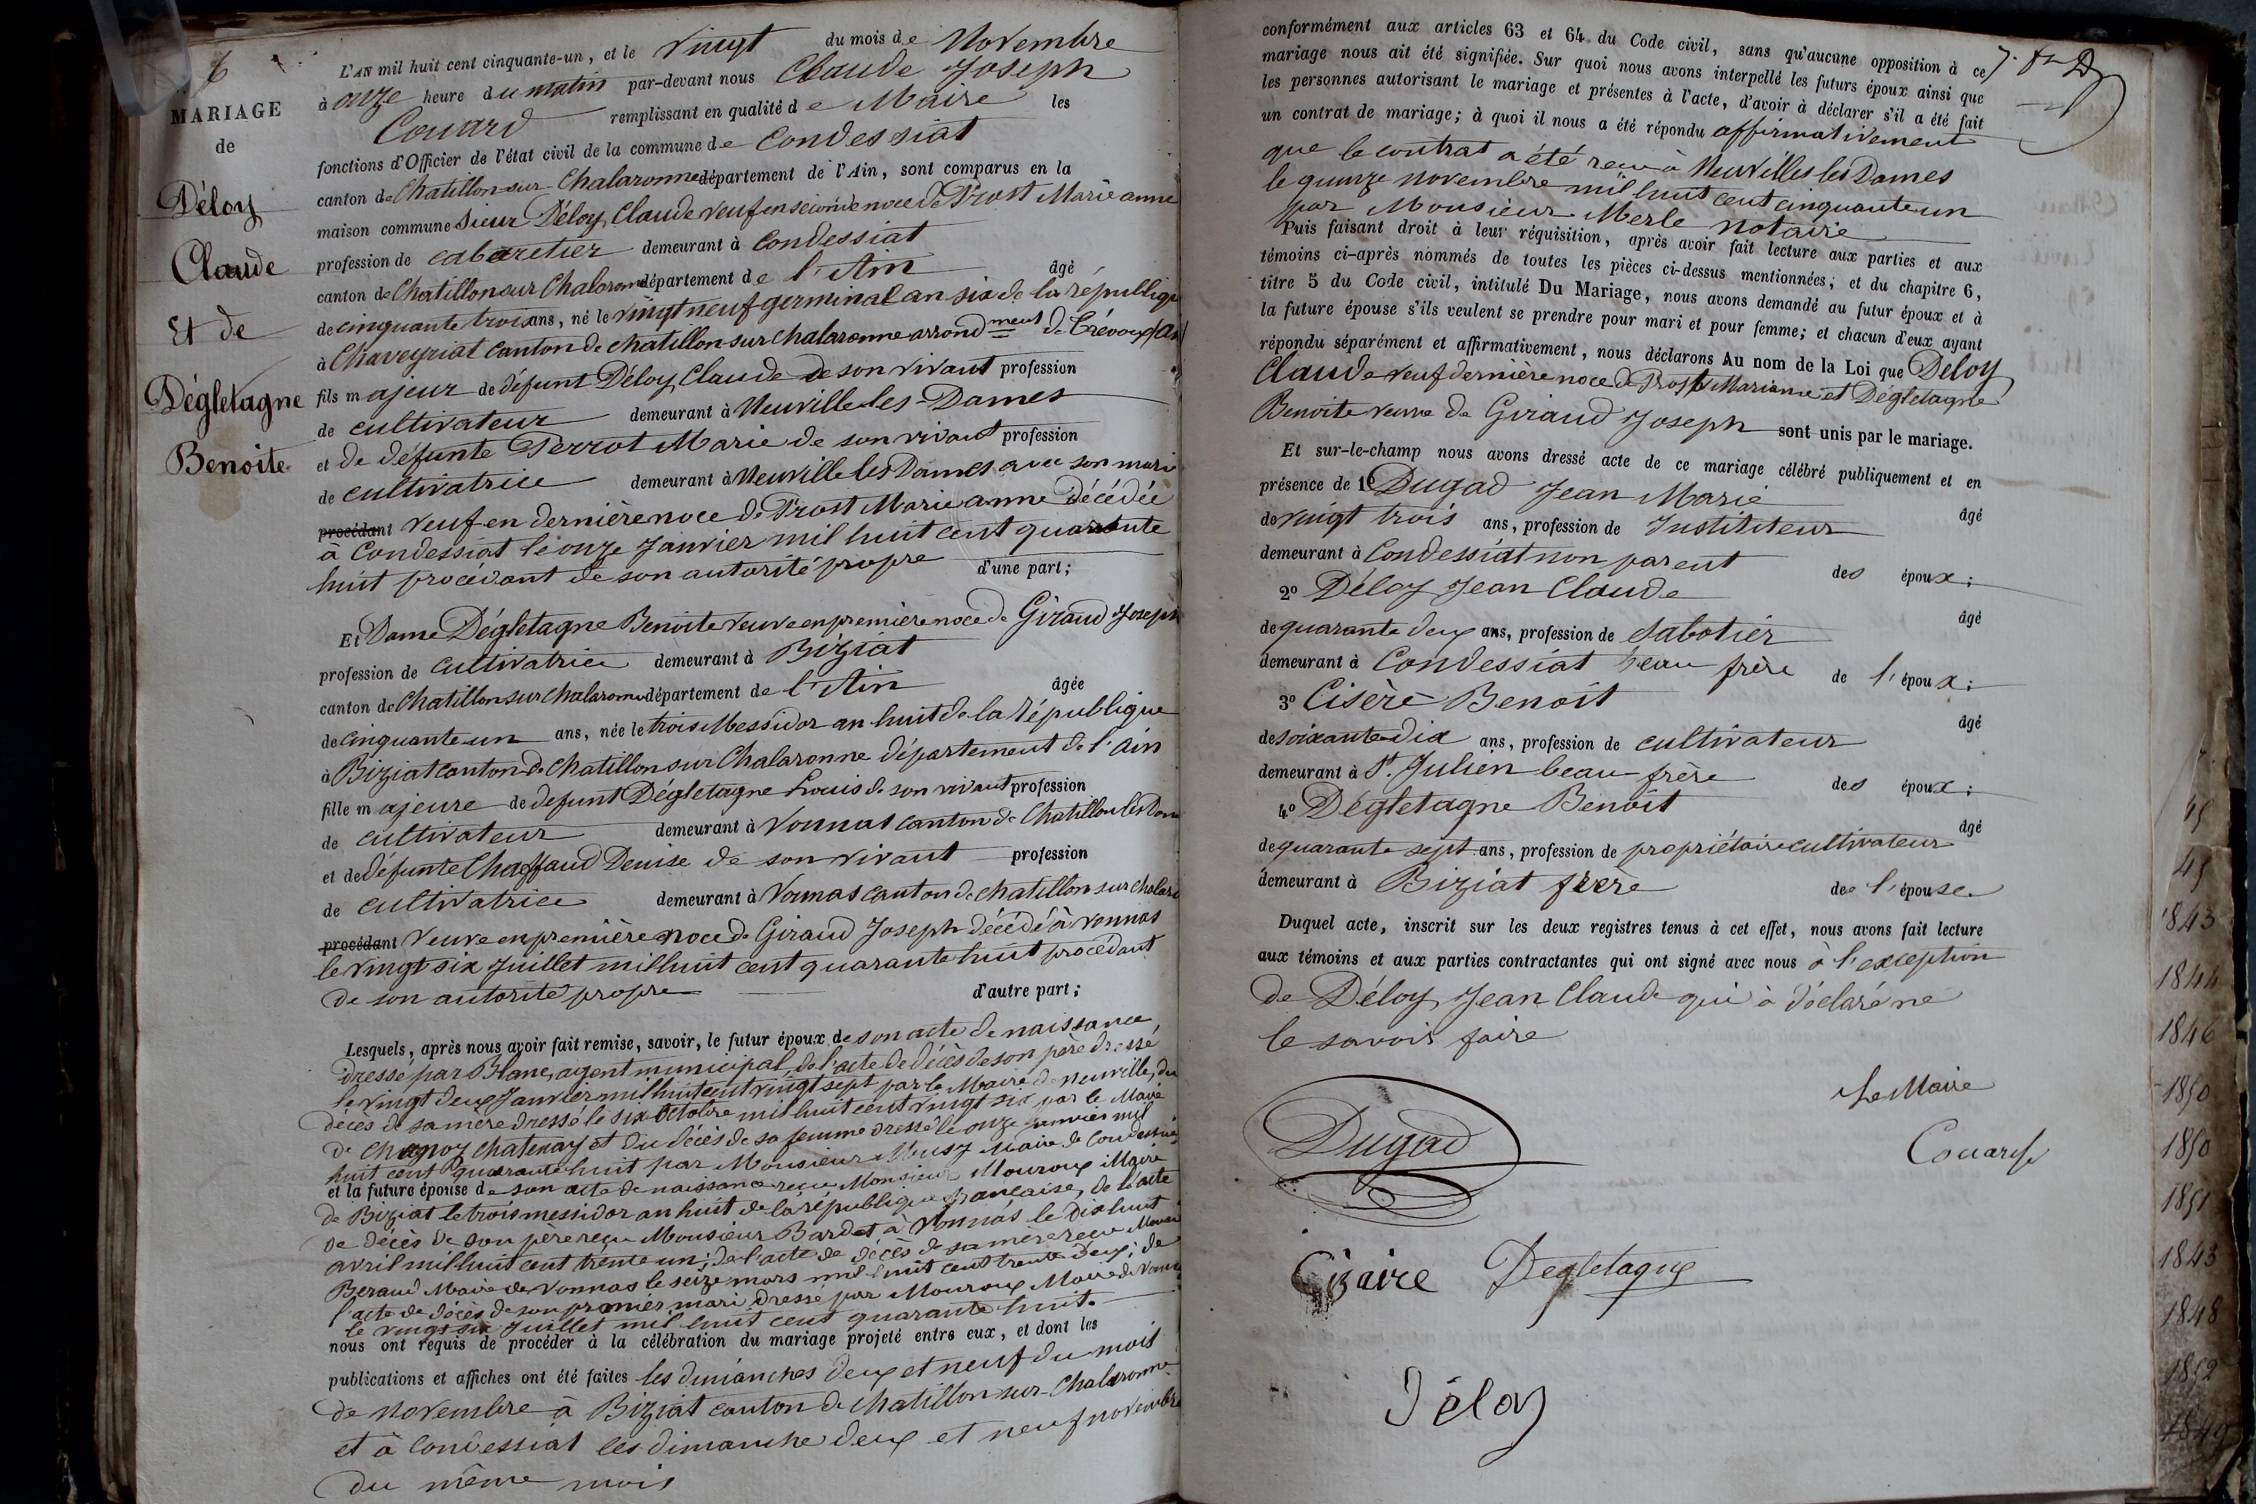 6
MARIAGE
de
Déloy
Claude
Et de
Dégletagne
Benoite
L'AN mil huit cent cinquante-un, et le vingt du mois de Novembre
à onze heure du matin par-devant nous Claude Joseph
Couard remplissant en qualité de Maire les
fonctions d'Officier de l'état civil de la commune de Condessiat
canton de Chatillon-sur-Chalaronne département de l'Ain, sont comparus en la
maison commune Sieur Déloy Claude veuf en seconde noce de Prost Marie anne
profession de cabaretier demeurant à Condessiat
canton de Chatillon sur Chalaronne département de l'Ain âgé
de cinquante trois ans, né le vingt neuf germinal an six de la républiq
à Chaveyriat Canton de chatillon sur chalaronne arrondment de Trévoux (Ain
fils majeur de défunt Déloy Claude de son vivant profession
de cultivateur demeurant à Neuville-les-Dames
et de défunte Perrot Marie de son vivant profession
de cultivatrice demeurant à Neuville les Dames avec son mari
procédant veuf en dernière noce de Prost Marie anne décédée
à Condessiat le onze Janvier mil huit cent quarante
huit procédant de son autorité propre d'une part;
Et Dame Dégletagne Benoite veuve en première noce de Giraud Joseph
profession de cultivatrice demeurant à Biziat
canton de Chatillon sur Chalaronne département de l'Ain âgée
de cinquante-un ans, née le trois Messidor an huit de la république
à Biziat canton de Chatillon sur Chalaronne département de l'Ain
fille majeure de defunt Dégletagne Louis de son vivant profession
de cultivateur demeurant à Vonnas canton de Chatillon les Dom
et de défunte Chaffaud Denise de son vivant profession
de cultivatrice demeurant à Vonnas canton de chatillon sur chalaro
procédant Veuve en première noce de Giraud Joseph décédé à vonnas
le vingt six Juillet mil huit cent quarante huit procédant
de son autorité propre d'autre part;
Lesquels, après nous avoir fait remise, savoir, le futur époux de son acte de naissance
dressé par Blanc, agent municipal, de l'acte de décès de son père dressé
le vingt deux Janvier mil huit cent vingt sept par le Maire de Neuville, du
décès de sa mère dressé le six octobre mil huit cent vingt six par le Maire
de Chanoz Chatenay et du décès de sa femme dressé le onze janvier mil
huit cent quarante huit par Monsieur Musy Maire de Condessiat
et la future épouse de son acte de naissance reçu Monsieur Mouroux Maire
de Biziat le trois messidor an huit de la république française, de l'acte
de décès de son père reçu Monsieur Bardet à Vonnas le dix huit
avril mil huit cent trente un; de l'acte de décès de sa mère reçu
Beraud Maire de Vonnas le seize mars mil huit cent trente deux; de
l'acte de décès de son premier mari dressé par Mouroux Maire de Vonn
le vingt six Juillet mil huit cent quarante huit.
nous ont requis de procéder à la célébration du mariage projeté entre eux, et dont les
publications et affiches ont été faites les dimanches deux et neuf du mois
de novembre à Biziat canton de chatillon-sur-Chalaronne
et à Condessiat les dimanche deux et neuf novembre
du même mois
conformément aux articles 63 et 64 du Code civil, sans qu'aucune opposition à ce
mariage nous ait été signifiée. Sur quoi nous avons interpellé les futurs époux ainsi que
les personnes autorisant le mariage et présentes à l'acte, d'avoir à déclarer s'il a été fait
un contrat de mariage; à quoi il nous a été répondu affirmativement
que le contrat a été reçu à Neuvilles les Dames
le quinze novembre mil huit cent cinquante un
par Monsieur Merle notaire
Puis faisant droit à leur réquisition, après avoir fait lecture aux parties et aux
témoins ci-après nommés de toutes les pièces ci-dessus mentionnées; et du chapitre 6,
titre 5 du Code civil, intitulé Du Mariage, nous avons demandé au futur époux et à
la future épouse s'ils veulent se prendre pour mari et pour femme; et chacun d'eux ayant
répondu séparément et affirmativement, nous déclarons Au nom de la Loi que Deloy
Claude veuf dernière noce de Prost Marianne et Dégletagne
Benoite veuve de Giraud Joseph sont unis par le mariage.
Et sur-le-champ nous avons dressé acte de ce mariage célébré publiquement et en
présence de 1º Dugad Jean Marie âgé
de vingt trois ans, profession de Instituteur
demeurant à Condessiat non parent des époux;
2º Déloy Jean Claude âgé
de quarante deux ans, profession de sabotier
demeurant à Condessiat beau frère de l'époux;
3º Cisère Benoit âgé
de soixante-dix ans, profession de cultivateur
demeurant à St. Julien beau-frère des époux;
4º Dégletagne Benoit âgé
de quarante sept ans, profession de propriétaire cultivateur
demeurant à Biziat frère de l'épouse
Duquel acte, inscrit sur les deux registres tenus à cet effet, nous avons fait lecture
aux témoins et aux parties contractantes qui ont signé avec nous à l'exception
de Déloy Jean Claude qui à déclaré ne
le savoir faire
Le Maire
Dugad
Couard
Cizaire Degletagne
Déloy
45
45
1843
1844
1846
1850
1850
1851
1843
1848
1852
1849